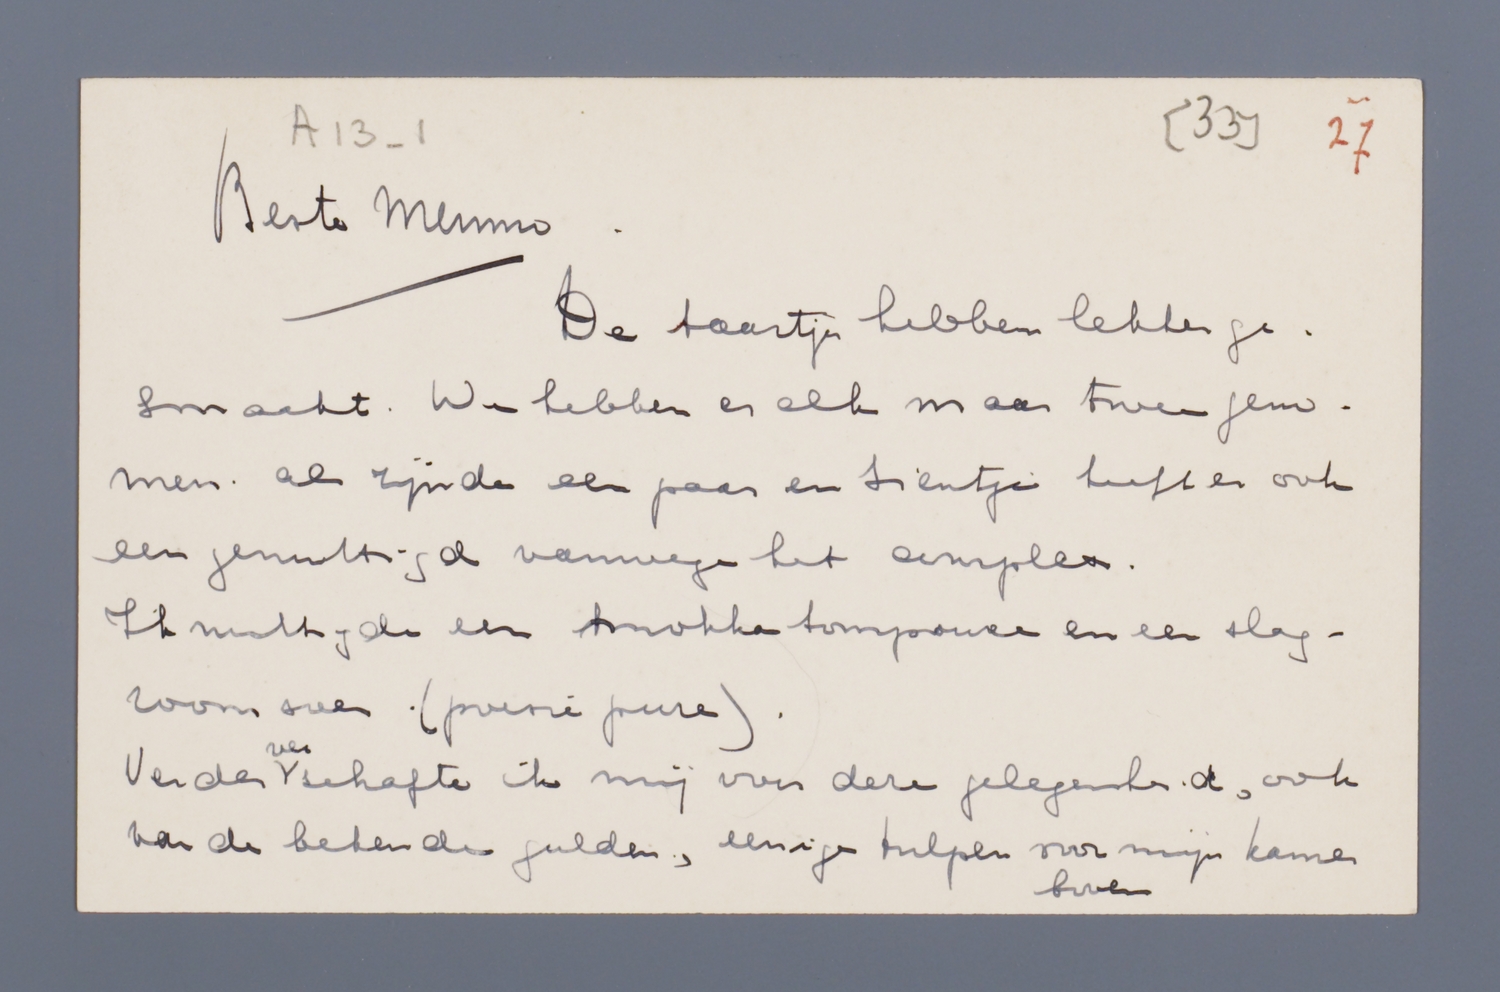 A 13-1
[33] 27
Beste Menno.
De taartjes hebben lekker ge-
smaakt. We hebben er elk maar twee geno-
men. als zijnde een paar en Sientje heeft er ook
een genuttigd vanwege het complex.
Ik nuttigde een mokka tompouce en een slag-
room soes (poésie pure).
Verder verschafte ik mij voor deze gelegenheid, ook
van de bekende gulden, eenige tulpen voor mijn kamer
boven